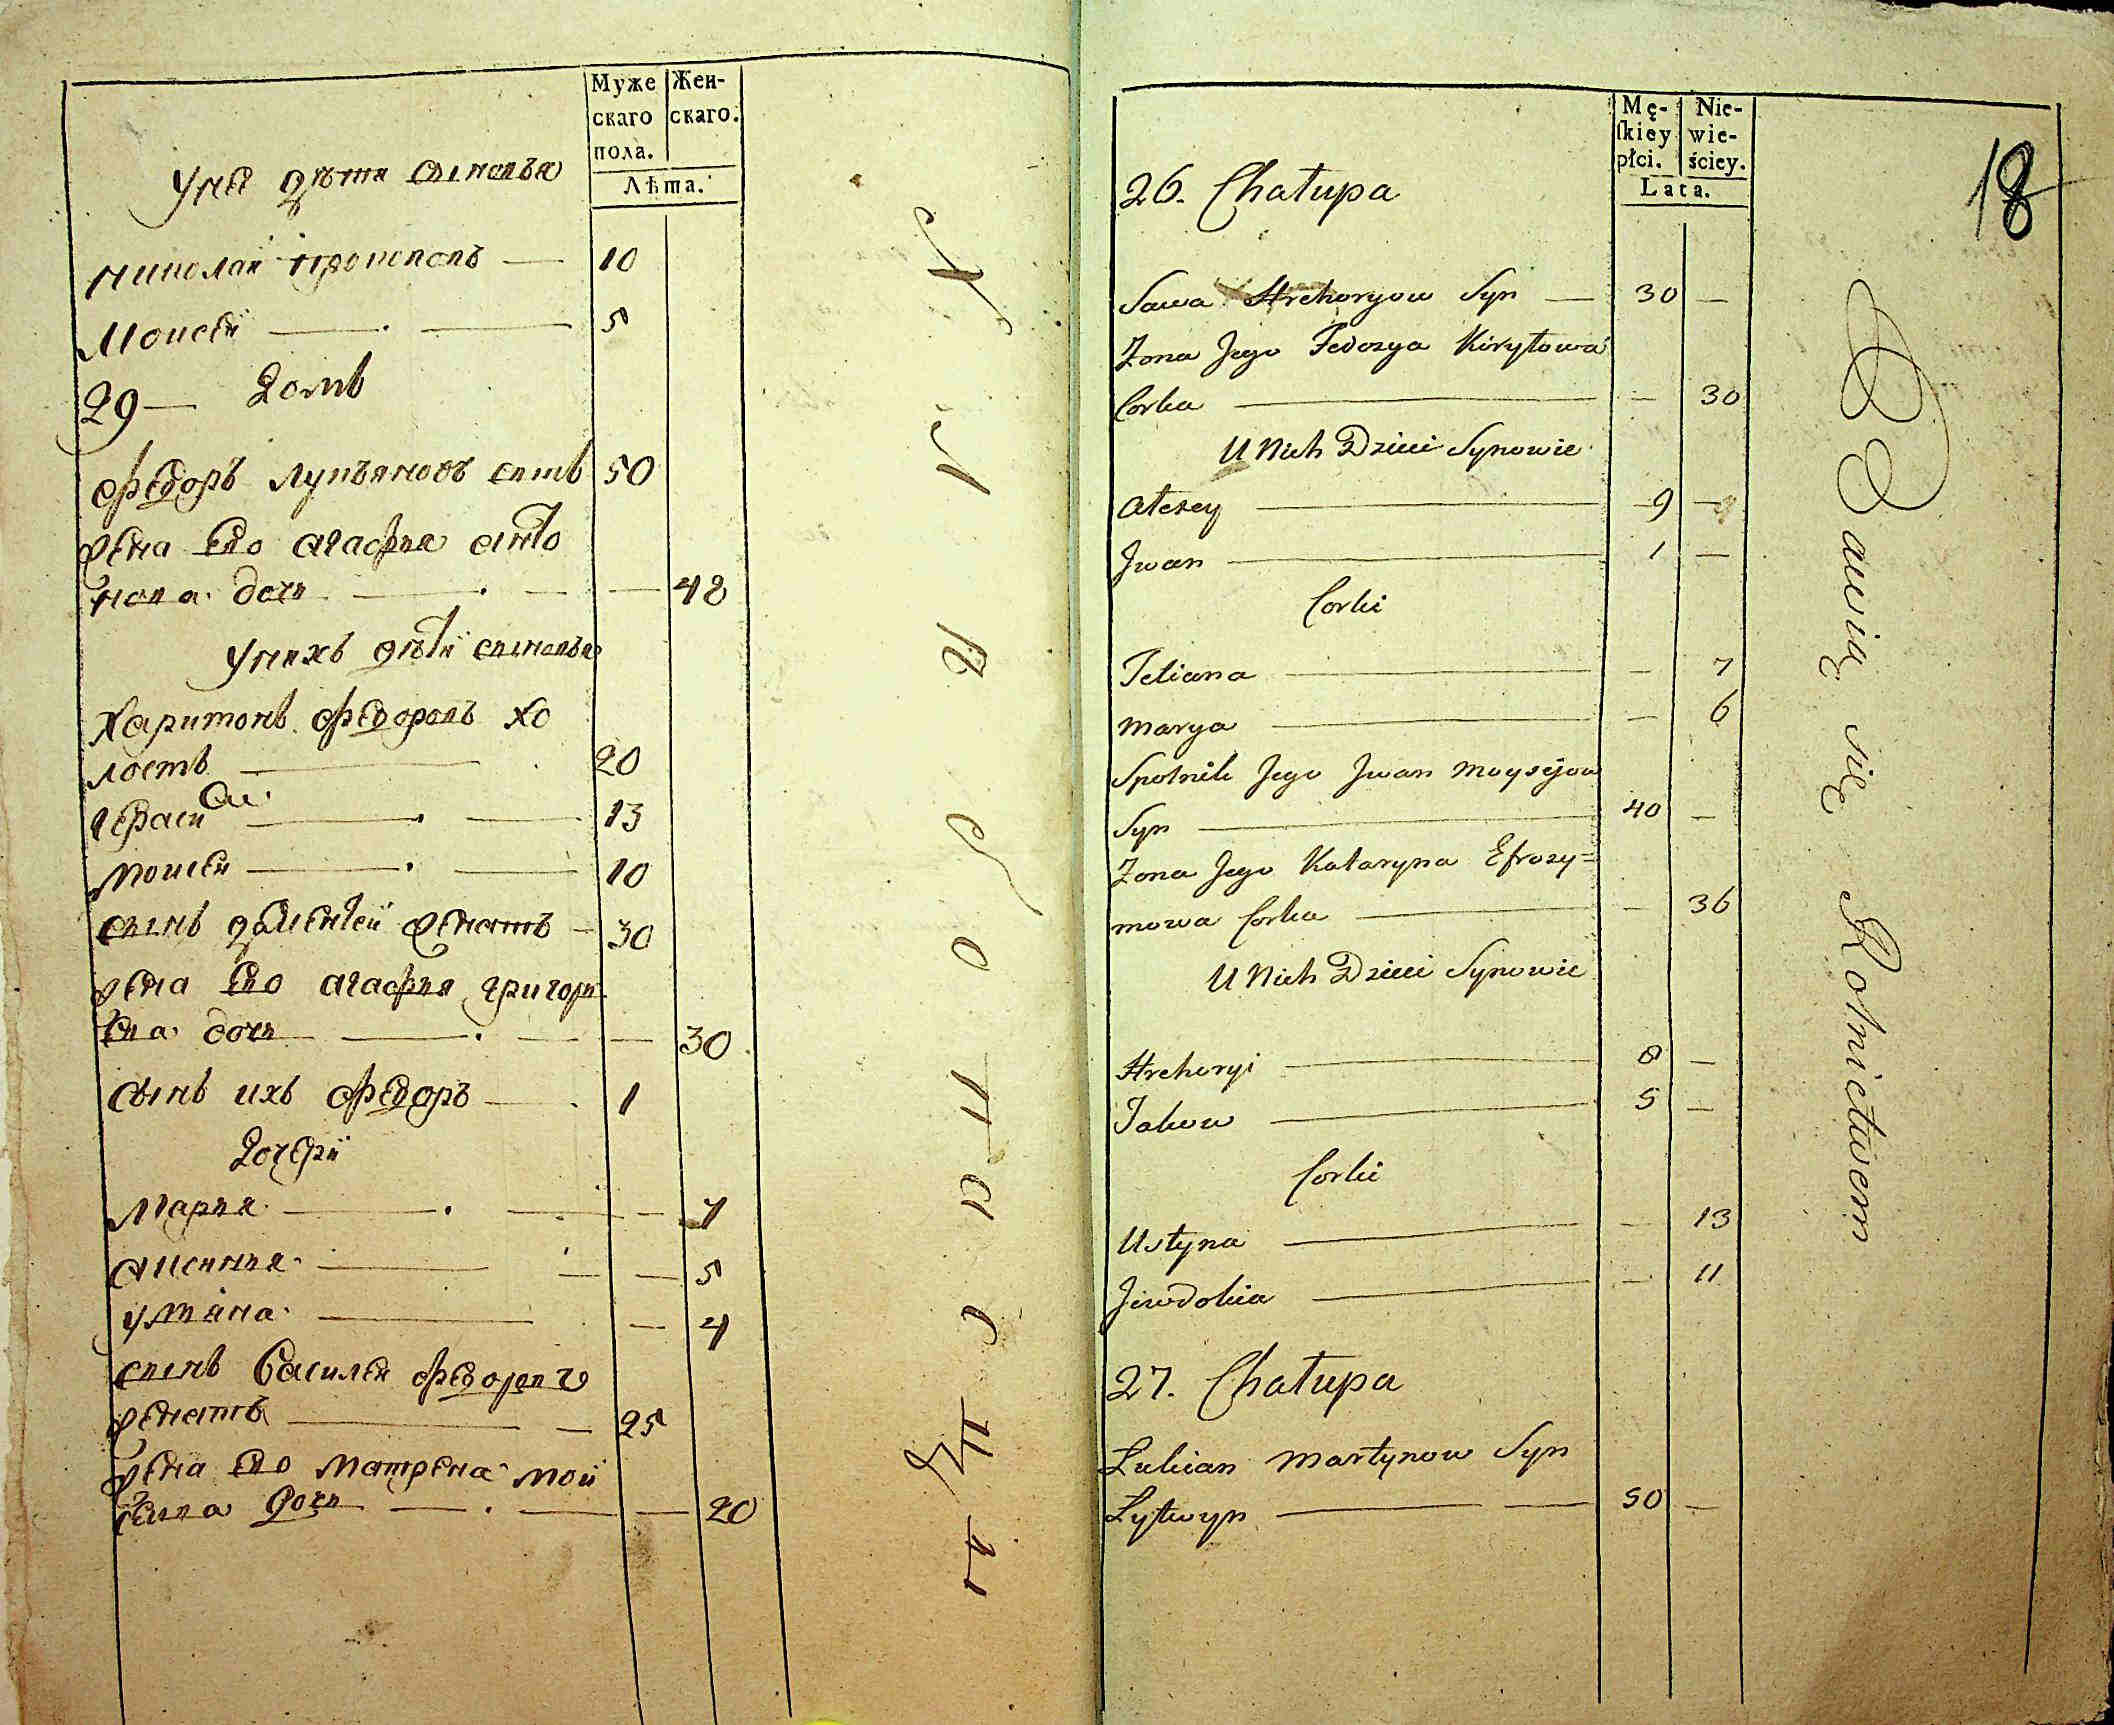 Муже
скаго
пола.
Жен-
скаго.
Лѣта.
Унеѣ дѣти сыновья
Николай Прокоповъ — 10
Моисѣй — 5
29 — Домъ
Федоръ Лукъяновъ сынъ 50
Жена Его Агафия Анто
нова дочь — 48
Унихъ дѣтей сыновья
Харитонъ Федоровъ хо
лостъ — 20
Гераси м — 13
Моисей — 10
Сынъ Дементей женатъ — 30
Жена Его Агафия Григорь
Ева дочь — 30
Сынъ ихъ Федоръ — 1
Дочери
Мария — 7
Аксинья — 5
Ульяна — 4
Сынъ Василей Федоровъ
женатъ — 25
Жена Его Матрена Мой
сеива дочь — 20
18
Mę-
ſkiey
płci.
Nie-
wie-
ściey.
Lata.
26. Chałupa
Sawa Hrehoryow Syn — 30 —
Zona Jego Fedozya Kiryłowa
Corka — 30
U Nich Dzieci Synowie
Alexey — 9 —
Jwan — 1 —
Corki
Tetiana — 7
Marya — 6
Spolnik Jego Jwan Moysejow
Syn — 40 —
Zona Jego Kataryna Efrozy=
mowa Corka — 36
U Nich Dzieci Synowie
Hrehoryi — 8 —
Jakow — 5 —
Corki
Ustyna — 13
Jewdokia — 11
27. Chałupa
Łukian Martynow Syn
Łytwyn — 50 —
Bawią się Rolnictwem